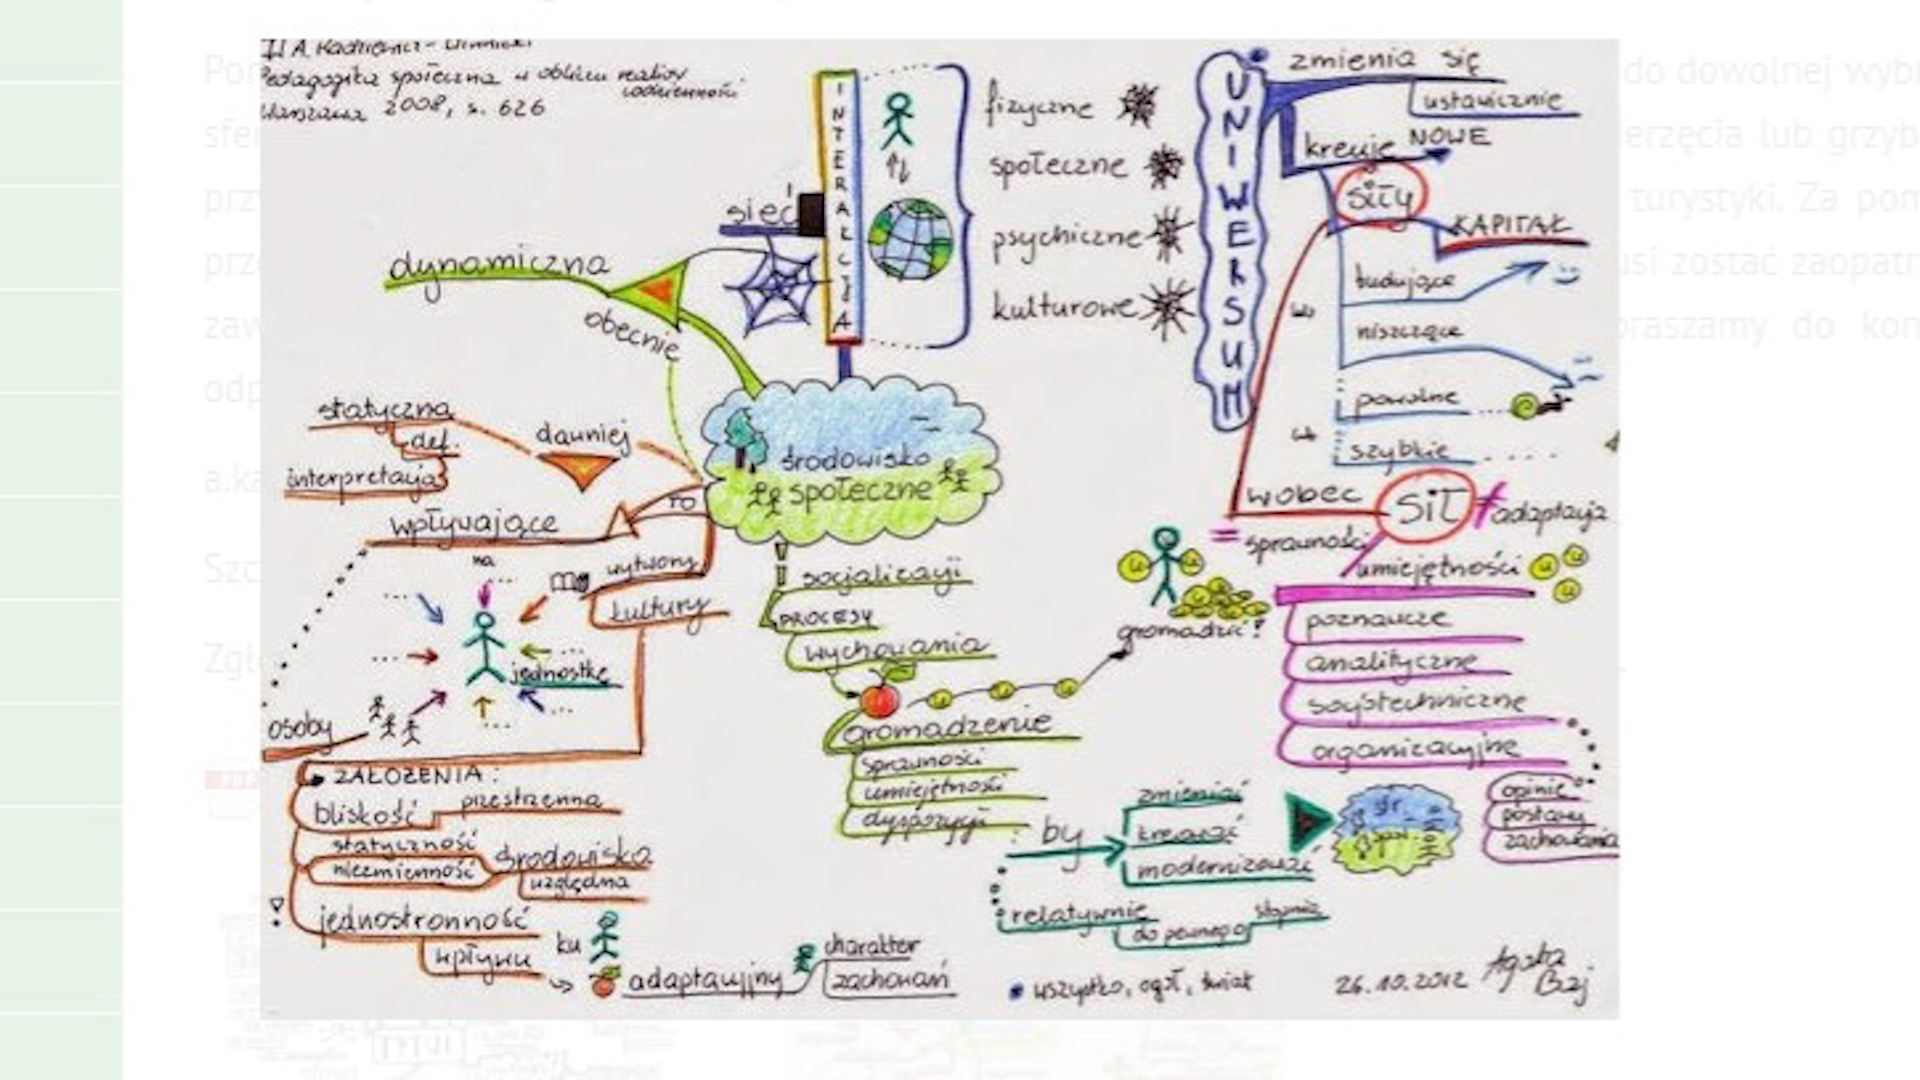 Pedagogika społeczna w obliczu realiów
codzienności
Warszawa 2008, s. 626
INTERAKCJA
sieć
dynamiczna
obecnie
fizyczne
społeczne
psychiczne
kulturowe
UNIWERSUM
zmienia się
ustawicznie
kreuje NOWE
siły
KAPITAŁ
budujące
niszczące
powolne
szybkie
statyczna
def.
interpretacja
dawniej
środowisko
społeczne
TO
wpływające
na
wytwory
kultury
jednostkę
osoby
ZAŁOŻENIA:
bliskość przestrzenna
statyczność
niezmienność
środowiska
względna
jednostronność
wpływu
ku
adaptacyjny
charakter
zachowań
socjalizacji
PROCESY
wychowania
gromadzenie
sprawności
umiejętności
dyspozycji
gromadzić!
wobec
sił
adaptacja
= sprawności
umiejętności
poznawcze
analityczne
socjotechniczne
organizacyjne
opinie
postawy
zachowania
by
zmieniać
kreować
modernizować
śr.
społ.
relatywnie
do pewnego
stopnia
wszystko, ogół, świat
26.10.2012 Agata
Baj
do dowolnej wybr
erzęcia lub grzyb
turystyki. Za pom
usi zostać zaopatr
praszamy do kon